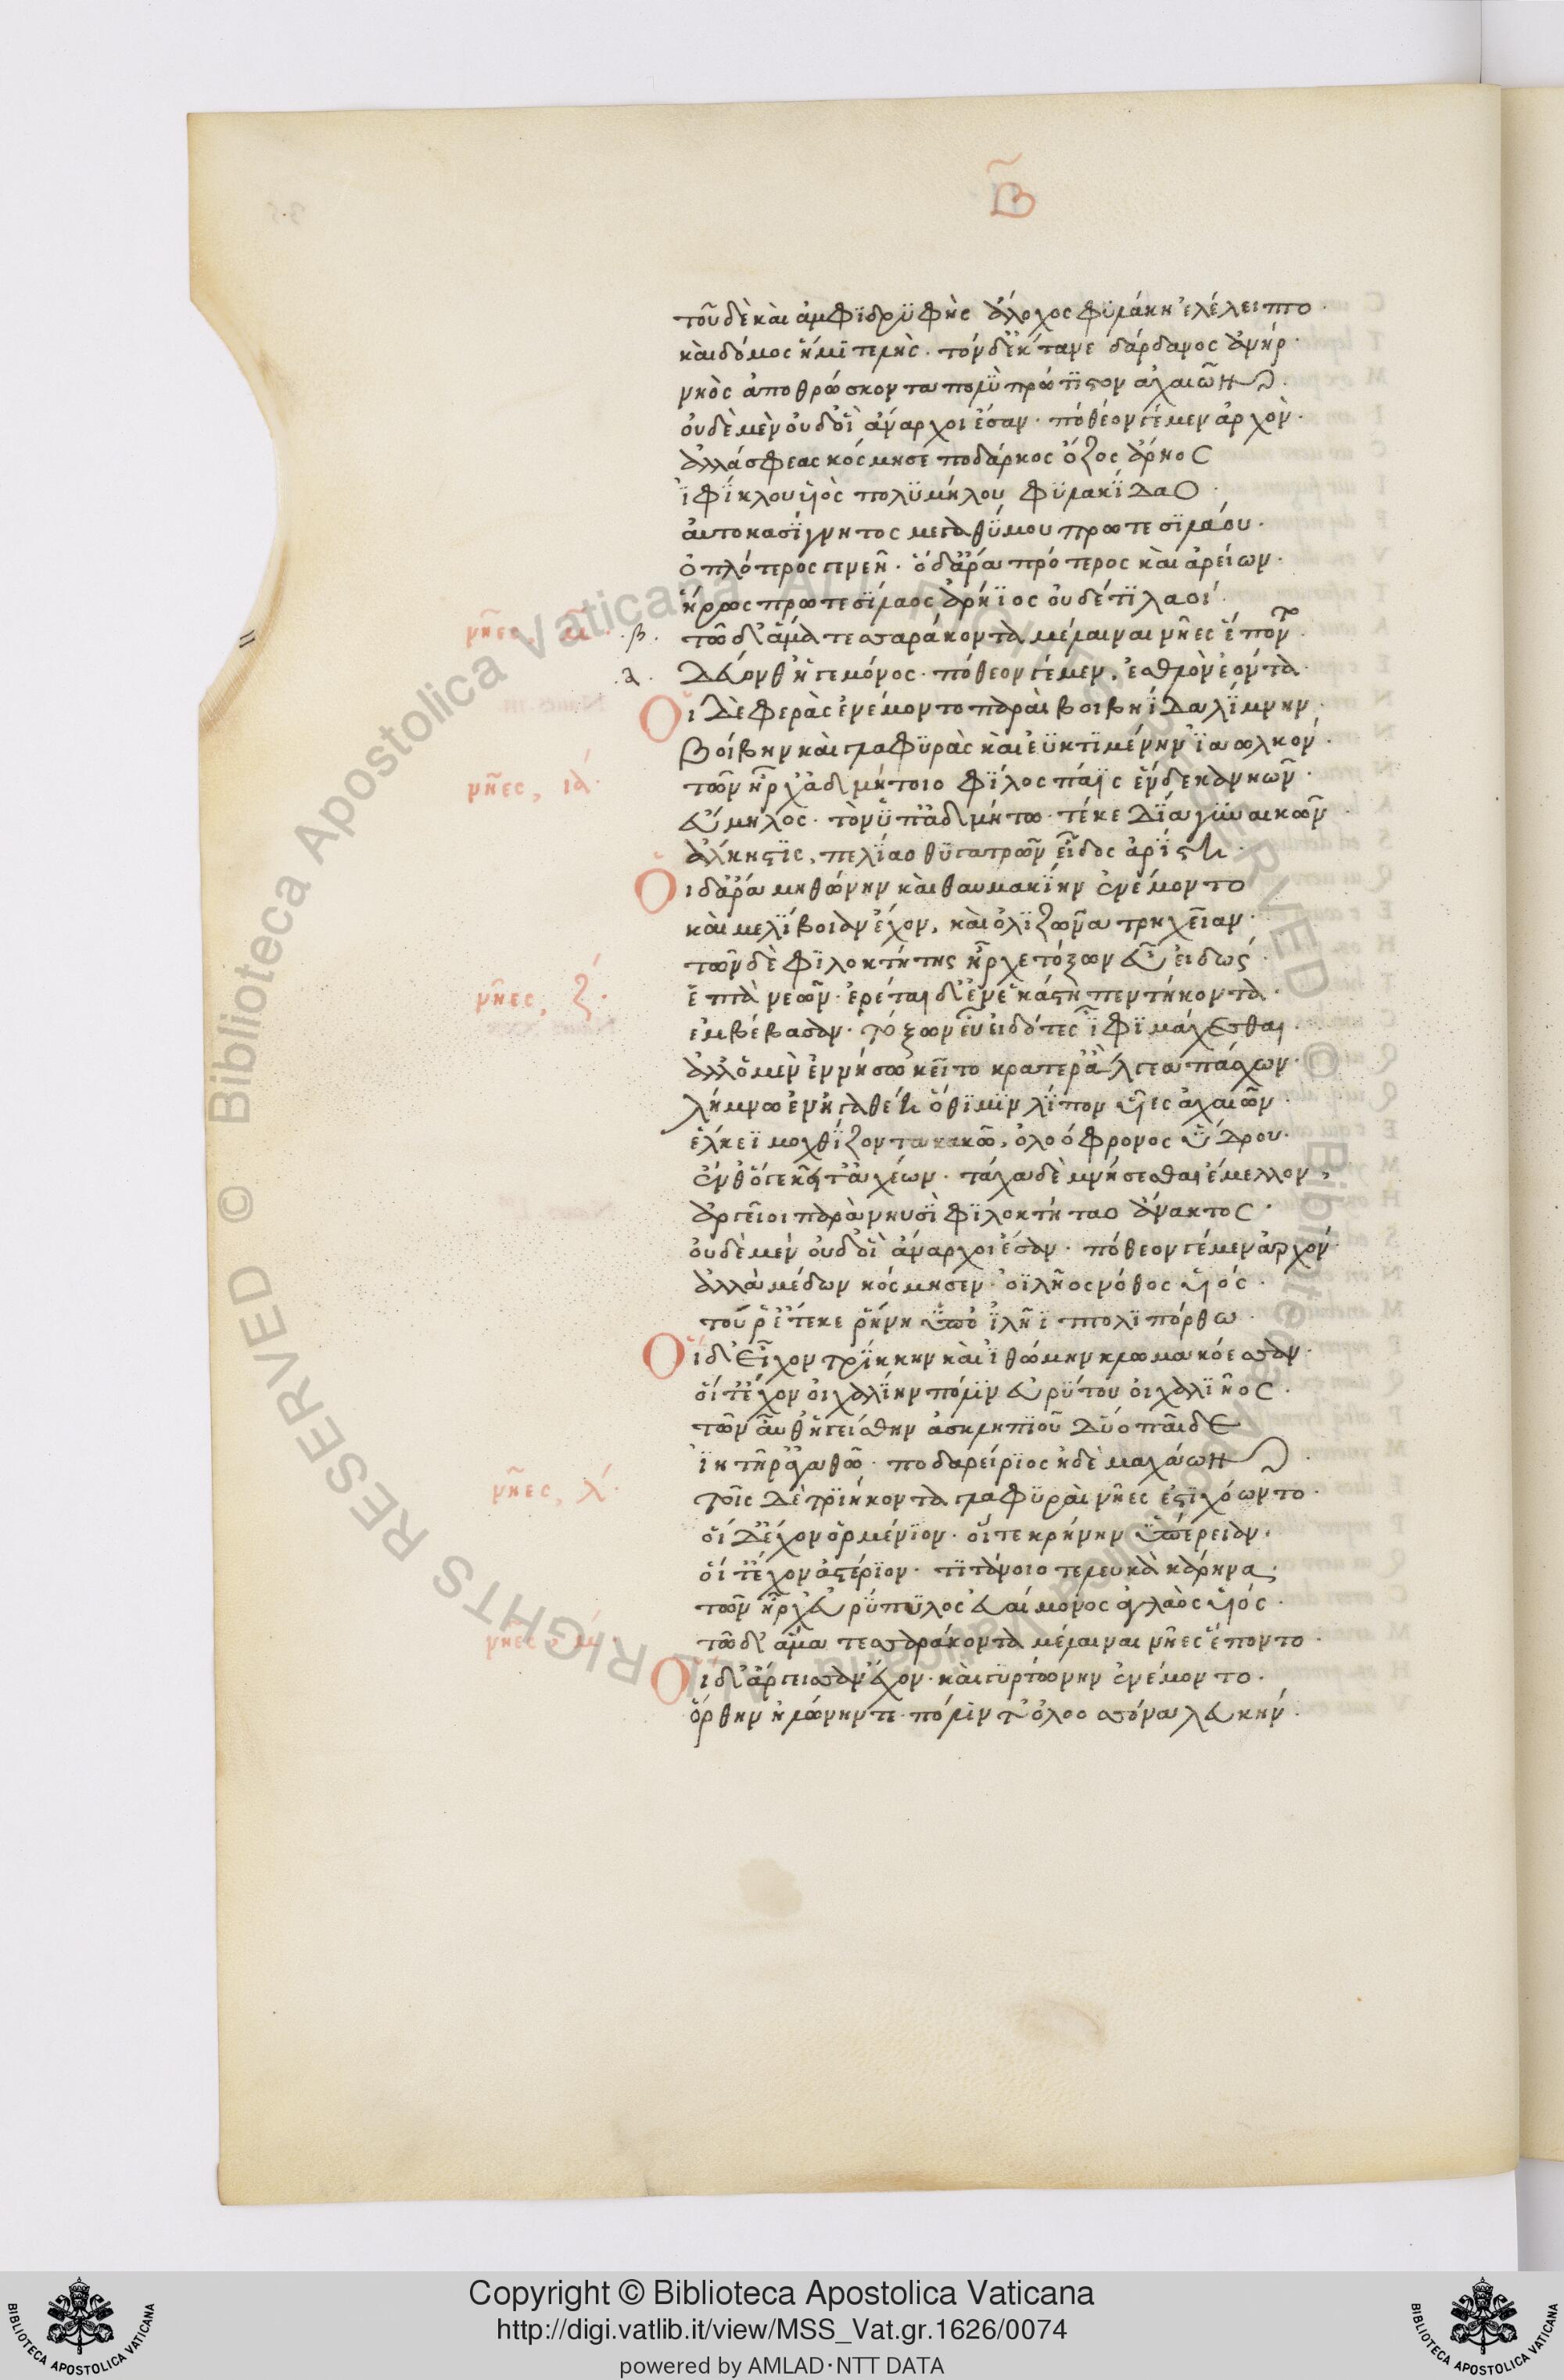 Β
τοῦ δὲ καὶ ἀμφϊδρϋφὴς ἄλοχος φϋλάκη ἐλέλειπτο.
καὶ δόμος ἡμϊτελὴς. τὸν δ' ἔκτανε δάρδανος ἀνήρ.
νηὸς ἀποθρώσκοντα πολὺ πρώτϊστον ἀχαιῶν.
οὐδὲ μὲν οὐδ' οἳ ἄναρχοι ἔσαν. πόθεόν γέ μεν ἀρχὸν.
ἀλλά σφεας κόσμησε ποδάρκος ὄζος ἄρηος
ἰφΐκλου υἱὸς πολϋμήλου φϋλακΐδαο.
αὐτοκασΐγνητος μεγαθΰμου πρωτεσϊλάου.
ὁπλότερος γενεῆ. ὁ δ' ἄρα πρότερος καὶ ἀρείων.
ἥρως πρωτεσΐλαος ἀρήϊος οὐδέ τϊ λαοὶ.
νῆες, μ. .β. τῶ δ' ἅμα τεσσαράκοντα μέλαιναι νῆες ἕποντο.
.α. δεύονθ' ἡγεμόνος. πόθεόν γέ μεν, ἐσθλὸν ἐόντα.
Οἱ δὲ φερὰς ἐνέμοντο παραὶ βοιβηΐδα λΐμνην.
Βοίβην καὶ γλαφϋρὰς καὶ ἐϋκτϊμένην ἰαωλκόν.
νῆες, ια. τῶν ἦρχ' ἀδμήτοιο φΐλος πάϊς ἕνδεκα νηῶν.
εὔμηλος. τὸν ὑπ' ἀδμήτω τέκε δῖα γϋναικῶν.
ἄλκηστϊς, πελΐαο θϋγατρῶν εἶδος ἀρΐστη.
Οἱ δ' ἄρα μηθώνην καὶ θαυμακΐην ἐνέμοντο
καὶ μελΐβοιαν ἔχον, καὶ ὀλϊζῶνα τρηχεῖαν.
τῶν δὲ φϊλοκτήτης ἦρχε τόξων εὖ εἰδώς.
νῆες, ζ. ἑπτὰ νεῶν. ἐρέται δ' ἐν ἑκάστη πεντήκοντα.
ἐμβέβασαν. τόξων εὖ εἰδότες ἶφϊ μάχεσθαι.
ἀλλ' ὁ μὲν ἐν νήσω κεῖτο κρατέρ' ἄλγεα πάσχων.
λήμνω ἐν ἠγαθέη ὅθϊ μϊν λΐπον υἷες ἀχαιῶν.
ἕλκεϊ μοχθΐζοντα κακῶ, ὀλοόφρονος ὕδρου.
ἔνθ' ὅγε κεῖτ' ἀχέων. τάχα δὲ μνήσεσθαι ἔμελλον,
ἀργεῖοι παρὰ νηυσὶ φϊλοκτήταο ἄνακτος.
οὐδὲ μὲν οὐδ' οἳ ἄναρχοι ἔσαν. πόθεόν γέ μεν ἀρχόν.
ἀλλὰ μέδων κόσμησεν. ὀϊλῆος νόθος υἱός.
τόν ῥ' ἔτεκε ῥήνη ὑπ' ὀϊλῆϊ πτολϊπόρθω.
Οἱ δ' εἶχον τρΐκκην καὶ ἰθώμην κλωμακόεσσαν.
οἵ τ' ἔχον οἰχαλΐην πόλϊν εὐρΰτου οἰχαλϊῆος.
τῶν αὖθ' ἡγείσθην ἀσκληπϊοῦ δύο παῖδε
ἰητῆρ' ἀγαθῶ. ποδαλείρϊος ἠδὲ μαχάων.
νῆες, λ. τοῖς δὲ τρϊήκοντα γλαφϋραὶ νῆες ἐστϊχόωντο.
οἳ δ' ἔχον ὀρμένϊον. οἵ τε κρήνην ὑπέρειαν.
οἵ τ' ἔχον ἀστέρϊον. τϊτάνοιό τε λευκὰ κάρηνα.
τῶν ἦρχ' εὐρΰπϋλος εὐαίμονος ἀγλαὸς υἱός.
νῆες, μ. τῶ δ' ἅμα τεσσαράκοντα μέλαιναι νῆες ἕποντο.
Οἱ δ' ἄργεισσαν ἔχον. καὶ γϋρτώνην ἐνέμοντο.
ὄρθην ἠλώνην τε. πόλιν τ' ὀλοοσσόνα λευκήν.
Copyright © Biblioteca Apostolica Vaticana
http://digi.vatlib.it/view/MSS_Vat.gr.1626/0074
powered by AMLAD·NTT DATA
BIBLIOTECA APOSTOLICA VATICANA
BIBLIOTECA APOSTOLICA VATICANA
Biblioteca Apostolica Vaticana ALL RIGHTS RESERVED ©